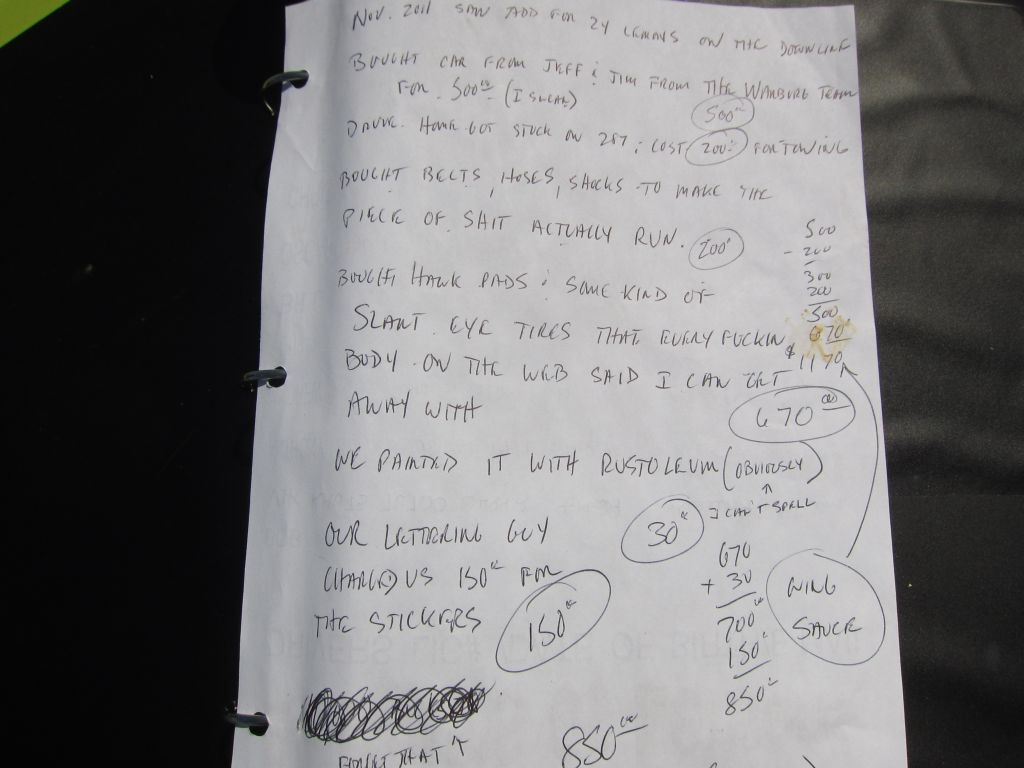 NOV. 2011 SAW ADD FOR 24 LEMONS ON THE DOWNLINE
BOUGHT CAR FROM JEFF & JIM FROM THE WARBURG TEAM
FOR. 500⁰⁰ (I SWEAR)
500⁰⁰
DROVE. HOME GOT STUCK ON 287; COST 200⁰⁰ FOR TOWING
BOUGHT BELTS, HOSES, SHOCKS TO MAKE THE
PIECE OF SHIT ACTUALLY RUN. 200⁰⁰
500
- 200
300
200
500
670⁰⁰
$1170
BOUGHT HAWK PADS & SOME KIND OF
SLANT. EYE TIRES THAT EVERY FUCKIN
BODY ON THE WEB SAID I CAN GET
AWAY WITH
670⁰⁰
WE PAINTED IT WITH RUSTOLEUM (OBVIOUSLY)
↑
I CAN'T SPELL
30⁰⁰
OUR LETTERING GUY
CHARGED US 150⁰⁰ FOR
THE STICKERS
150⁰⁰
670
+ 30
700⁰⁰
150⁰⁰
850⁰⁰
WING
SAUCE
FORGET THAT ↑
850⁰⁰